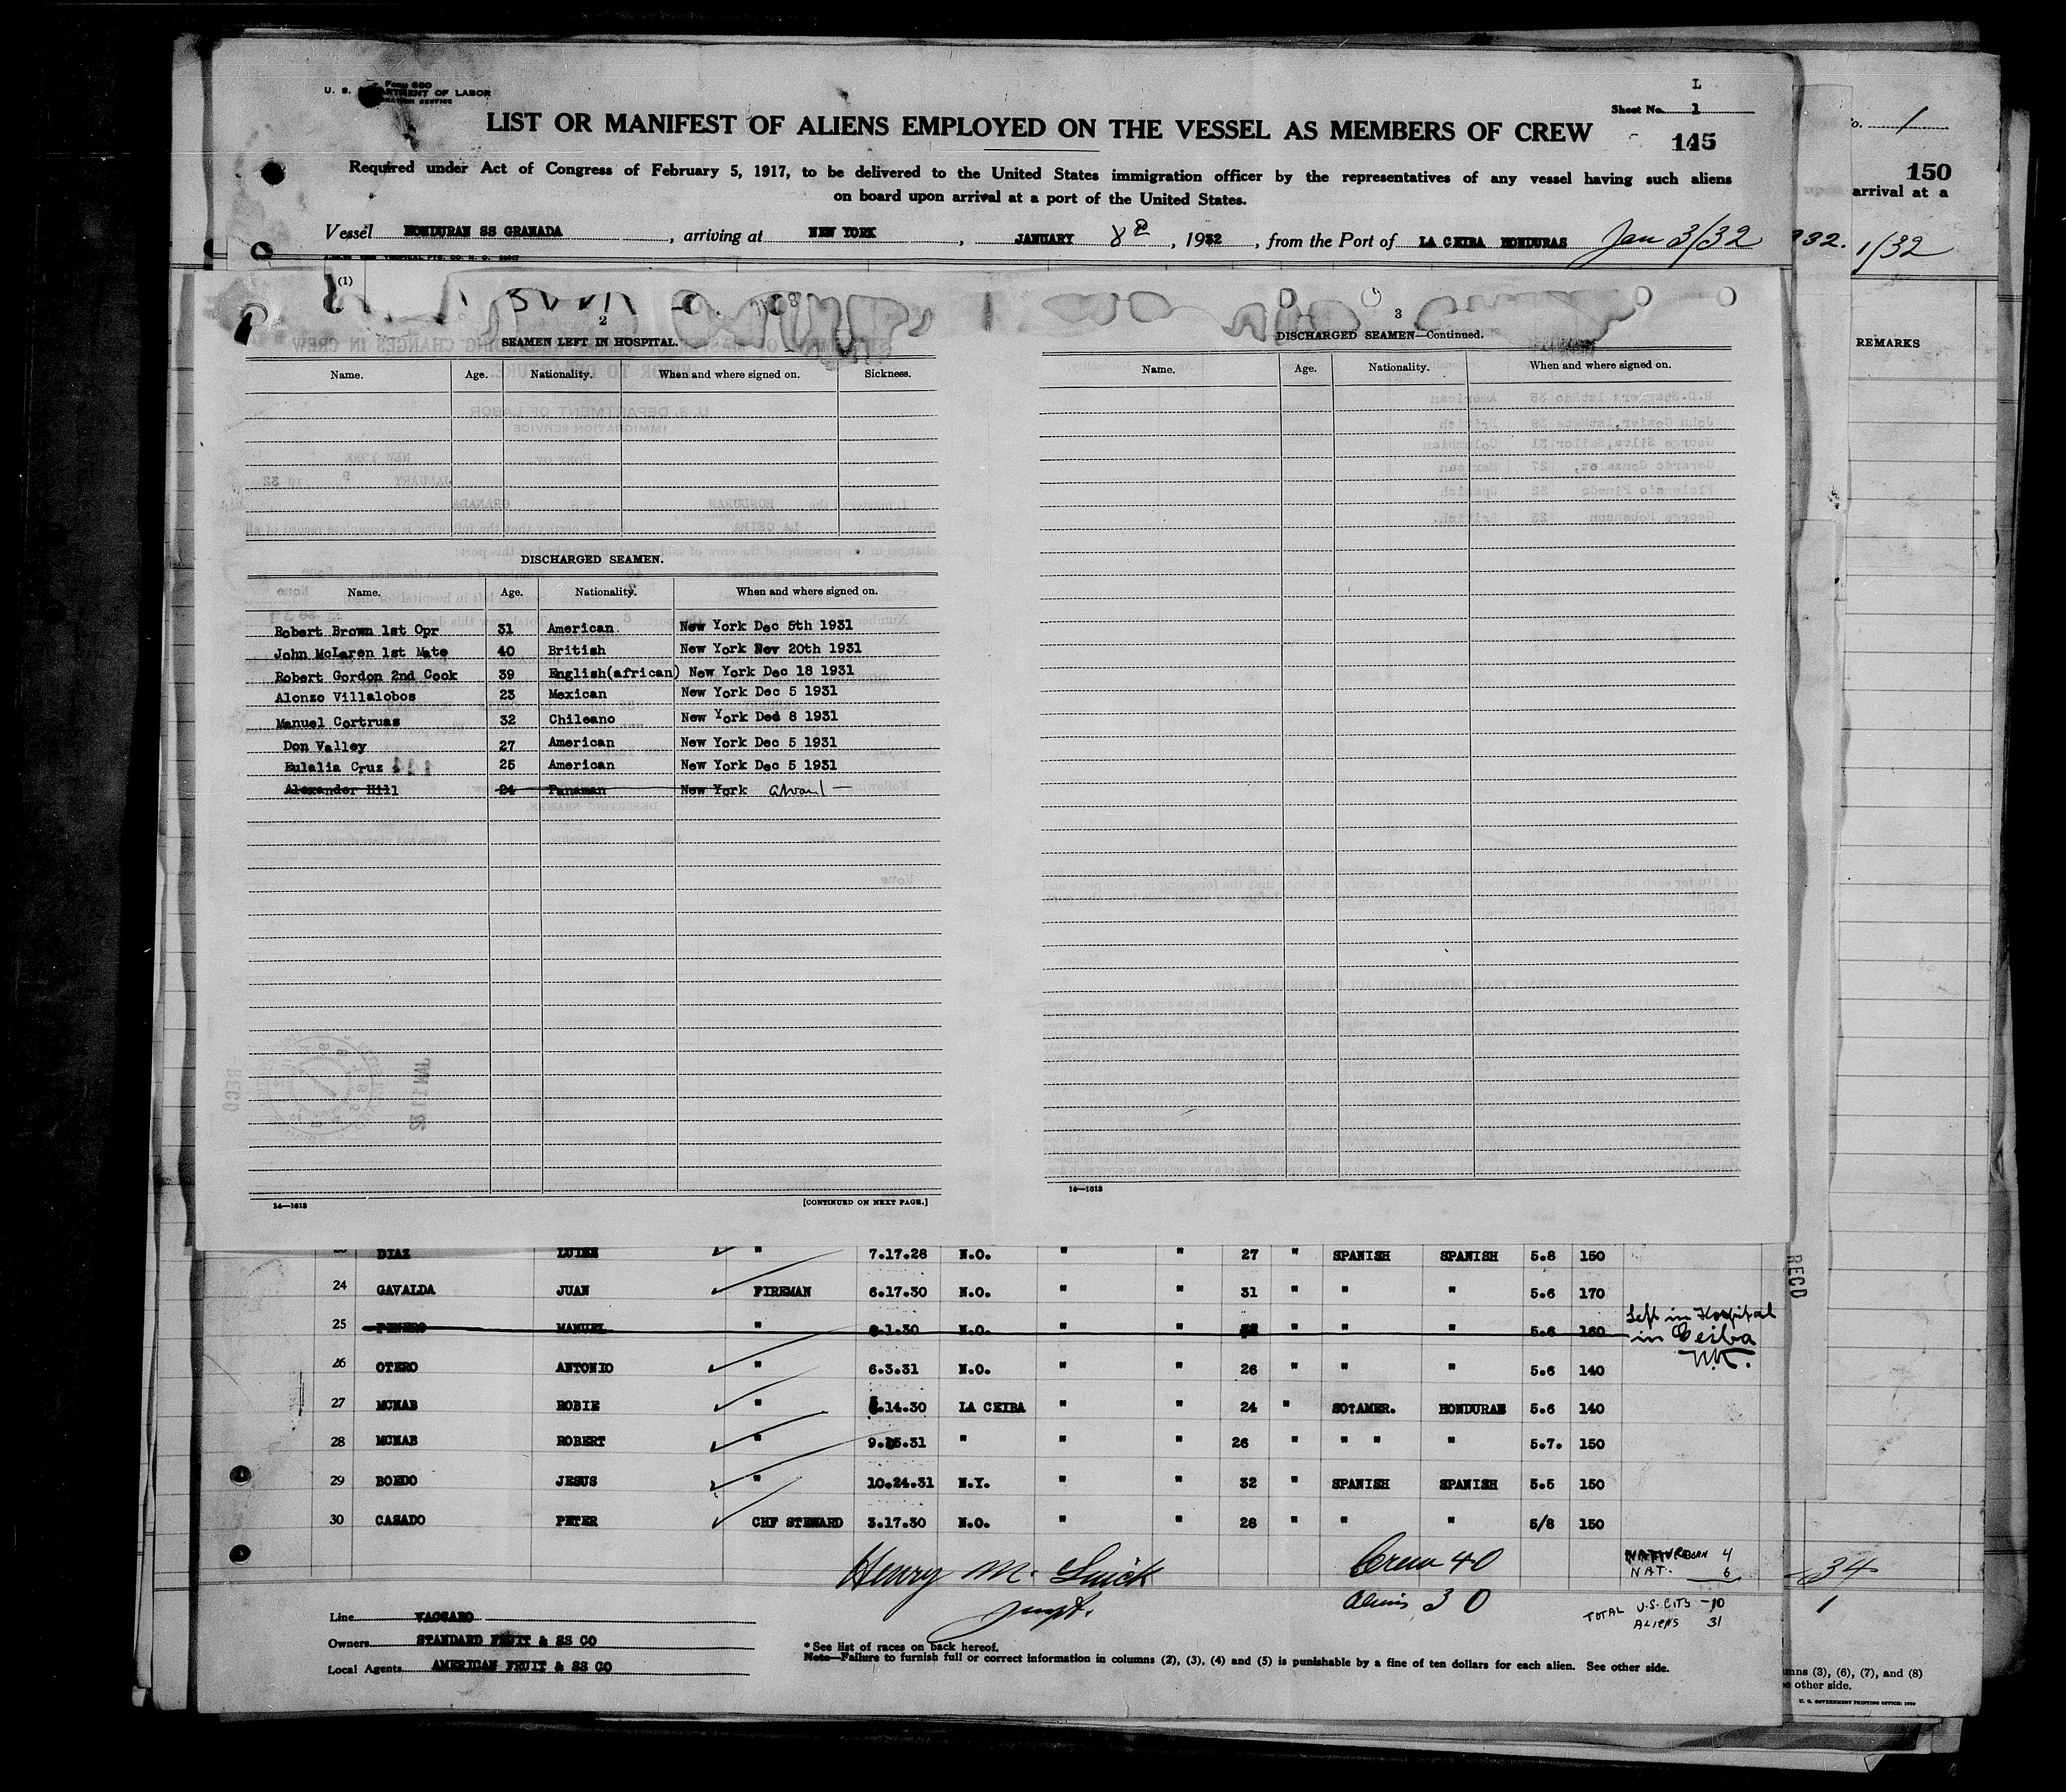 Form 680
U. S. DEPARTMENT OF LABOR
IMMIGRATION SERVICE
L
Sheet No. 1
LIST OR MANIFEST OF ALIENS EMPLOYED ON THE VESSEL AS MEMBERS OF CREW
145
Required under Act of Congress of February 5, 1917, to be delivered to the United States immigration officer by the representatives of any vessel having such aliens
on board upon arrival at a port of the United States.
Vessel HONDURAN SS GRANADA, arriving at NEW YORK, JANUARY 8th, 1932, from the Port of LA CEIBA HONDURAS Jan 3/32
o. 1
150
arrival at a
932. 1/32
REMARKS
(1)
2
SEAMEN LEFT IN HOSPITAL.
Name. Age. Nationality. When and where signed on. Sickness.
DISCHARGED SEAMEN.
Name. Age. Nationality. When and where signed on.
Robert Brown 1st Opr 31 American. New York Dec 5th 1931
John McLaren 1st Mate 40 British New York Nov 20th 1931
Robert Gordon 2nd Cook 39 English(african) New York Dec 18 1931
Alonzo Villalobos 23 Mexican New York Dec 5 1931
Manuel Cortruas 32 Chileano New York Ded 8 1931
Don Valley 27 American New York Dec 5 1931
Eulalia Cruz 25 American New York Dec 5 1931
Alexander Hill 24 Panaman New York
14—1613
[CONTINUED ON NEXT PAGE.]
3
DISCHARGED SEAMEN—Continued.
Name. Age. Nationality. When and where signed on.
14—1613
DIAZ LUIZE " 7.17.28 N.O. " " 27 " SPANISH SPANISH 5.8 150
24 GAVALDA JUAN FIREMAN 6.17.30 N.O. " " 31 " " " 5.6 170
25 MANUEL " .1.30 N.O. " " " " " 5.6 160 Left in Hospital
in Ceiba
26 OTERO ANTONIO " 6.3.31 N.O. " " 26 " " " 5.6 140
27 MCNAB ROBIE " .14.30 LA CEIBA " " 24 " SO?AMER. HONDURAN 5.6 140
28 MCNAB ROBERT " 9.25.31 " " " 26 " " " " 5.7. 150
29 BOEDO JESUS " 10.24.31 N.Y. " " 32 " SPANISH SPANISH 5.5 150
30 CASADO PETER CHF STEWARD 3.17.30 N.O. " " 28 " " " 5/8 150
Henry M.
Crew 40
Aliens 30
NATIVE BORN 4
NAT. 6
TOTAL U.S. CITS -10
ALIENS 31
34
1
Line VACCARO
Owners STANDARD FRUIT & SS CO
Local Agents AMERICAN FRUIT & SS CO
* See list of races on back hereof.
Note—Failure to furnish full or correct information in columns (2), (3), (4) and (5) is punishable by a fine of ten dollars for each alien. See other side.
RECD
mns (3), (6), (7), and (8)
e other side.
U. S. GOVERNMENT PRINTING OFFICE: 1930